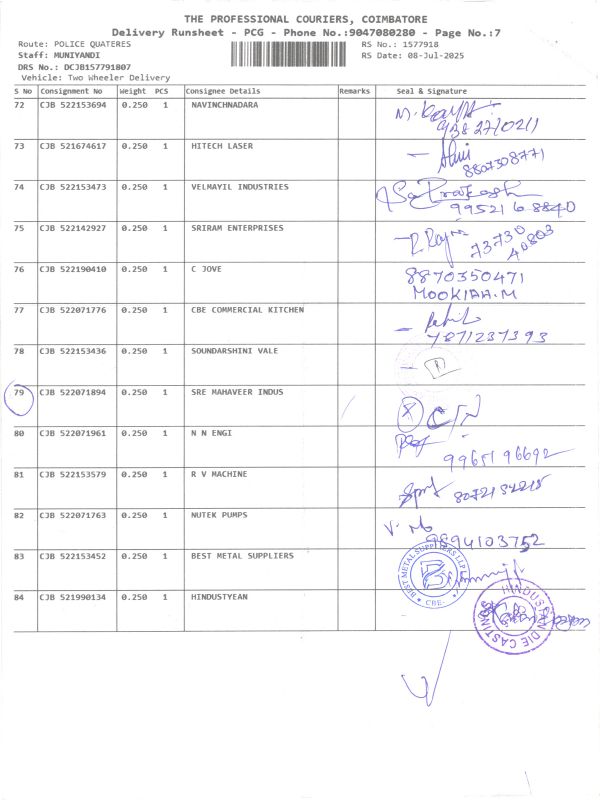 THE PROFESSIONAL COURIERS, COIMBATORE
Delivery Runsheet - PCG - Phone No.:9047080280 - Page No.:7
Route: POLICE QUATERES RS No.: 1577918
Staff: MUNIYANDI RS Date: 08-Jul-2025
DRS No.: DCJB157791807
Vehicle: Two Wheeler Delivery
S No Consignment No Weight PCS Consignee Details Remarks Seal & Signature
72 CJB 522153694 0.250 1 NAVINCHNADARA
73 CJB 521674617 0.250 1 HITECH LASER
8807308771
74 CJB 522153473 0.250 1 VELMAYIL INDUSTRIES
99521 6 8840
75 CJB 522142927 0.250 1 SRIRAM ENTERPRISES
73730
40803
76 CJB 522190410 0.250 1 C JOVE 8870350471
MOOKIAH.M
77 CJB 522071776 0.250 1 CBE COMMERCIAL KITCHEN
7871237393
78 CJB 522153436 0.250 1 SOUNDARSHINI VALE
79 CJB 522071894 0.250 1 SRE MAHAVEER INDUS
80 CJB 522071961 0.250 1 N N ENGI
99651 96692
81 CJB 522153579 0.250 1 R V MACHINE
82 CJB 522071763 0.250 1 NUTEK PUMPS
9894103752
83 CJB 522153452 0.250 1 BEST METAL SUPPLIERS
BEST METAL SUPPLIERS LLP
CBE-
84 CJB 521990134 0.250 1 HINDUSTYEAN
HINDUSTAN DIE CASTINGS